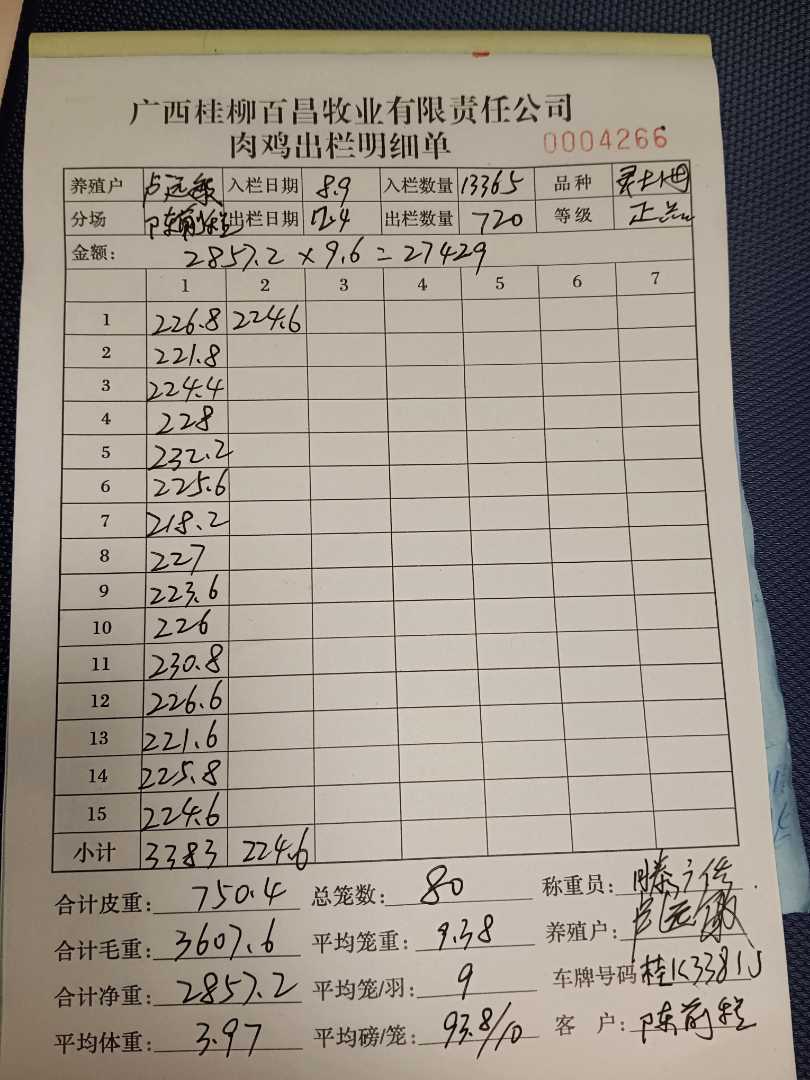 广西桂柳百昌牧业有限责任公司
肉鸡出栏明细单 0004266
养殖户 卢远敏 入栏日期 8.9 入栏数量 13365 品种
分场 陈前程 出栏日期 12.4 出栏数量 720 等级 正品
金额: 2857.2 × 9.6 = 27429
1 2 3 4 5 6 7
1 226.8 224.6
2 221.8
3 224.4
4 228
5 232.2
6 225.6
7 218.2
8 227
9 223.6
10 226
11 230.8
12 226.6
13 221.6
14 225.8
15 224.6
小计 3383 224.6
合计皮重: 750.4 总笼数: 80 称重员:
合计毛重: 3607.6 平均笼重: 9.38 养殖户: 卢远敏
合计净重: 2857.2 平均笼/羽: 9 车牌号码 桂K3381J
平均体重: 3.97 平均磅/笼: 93.8/10 客户: 陈前程